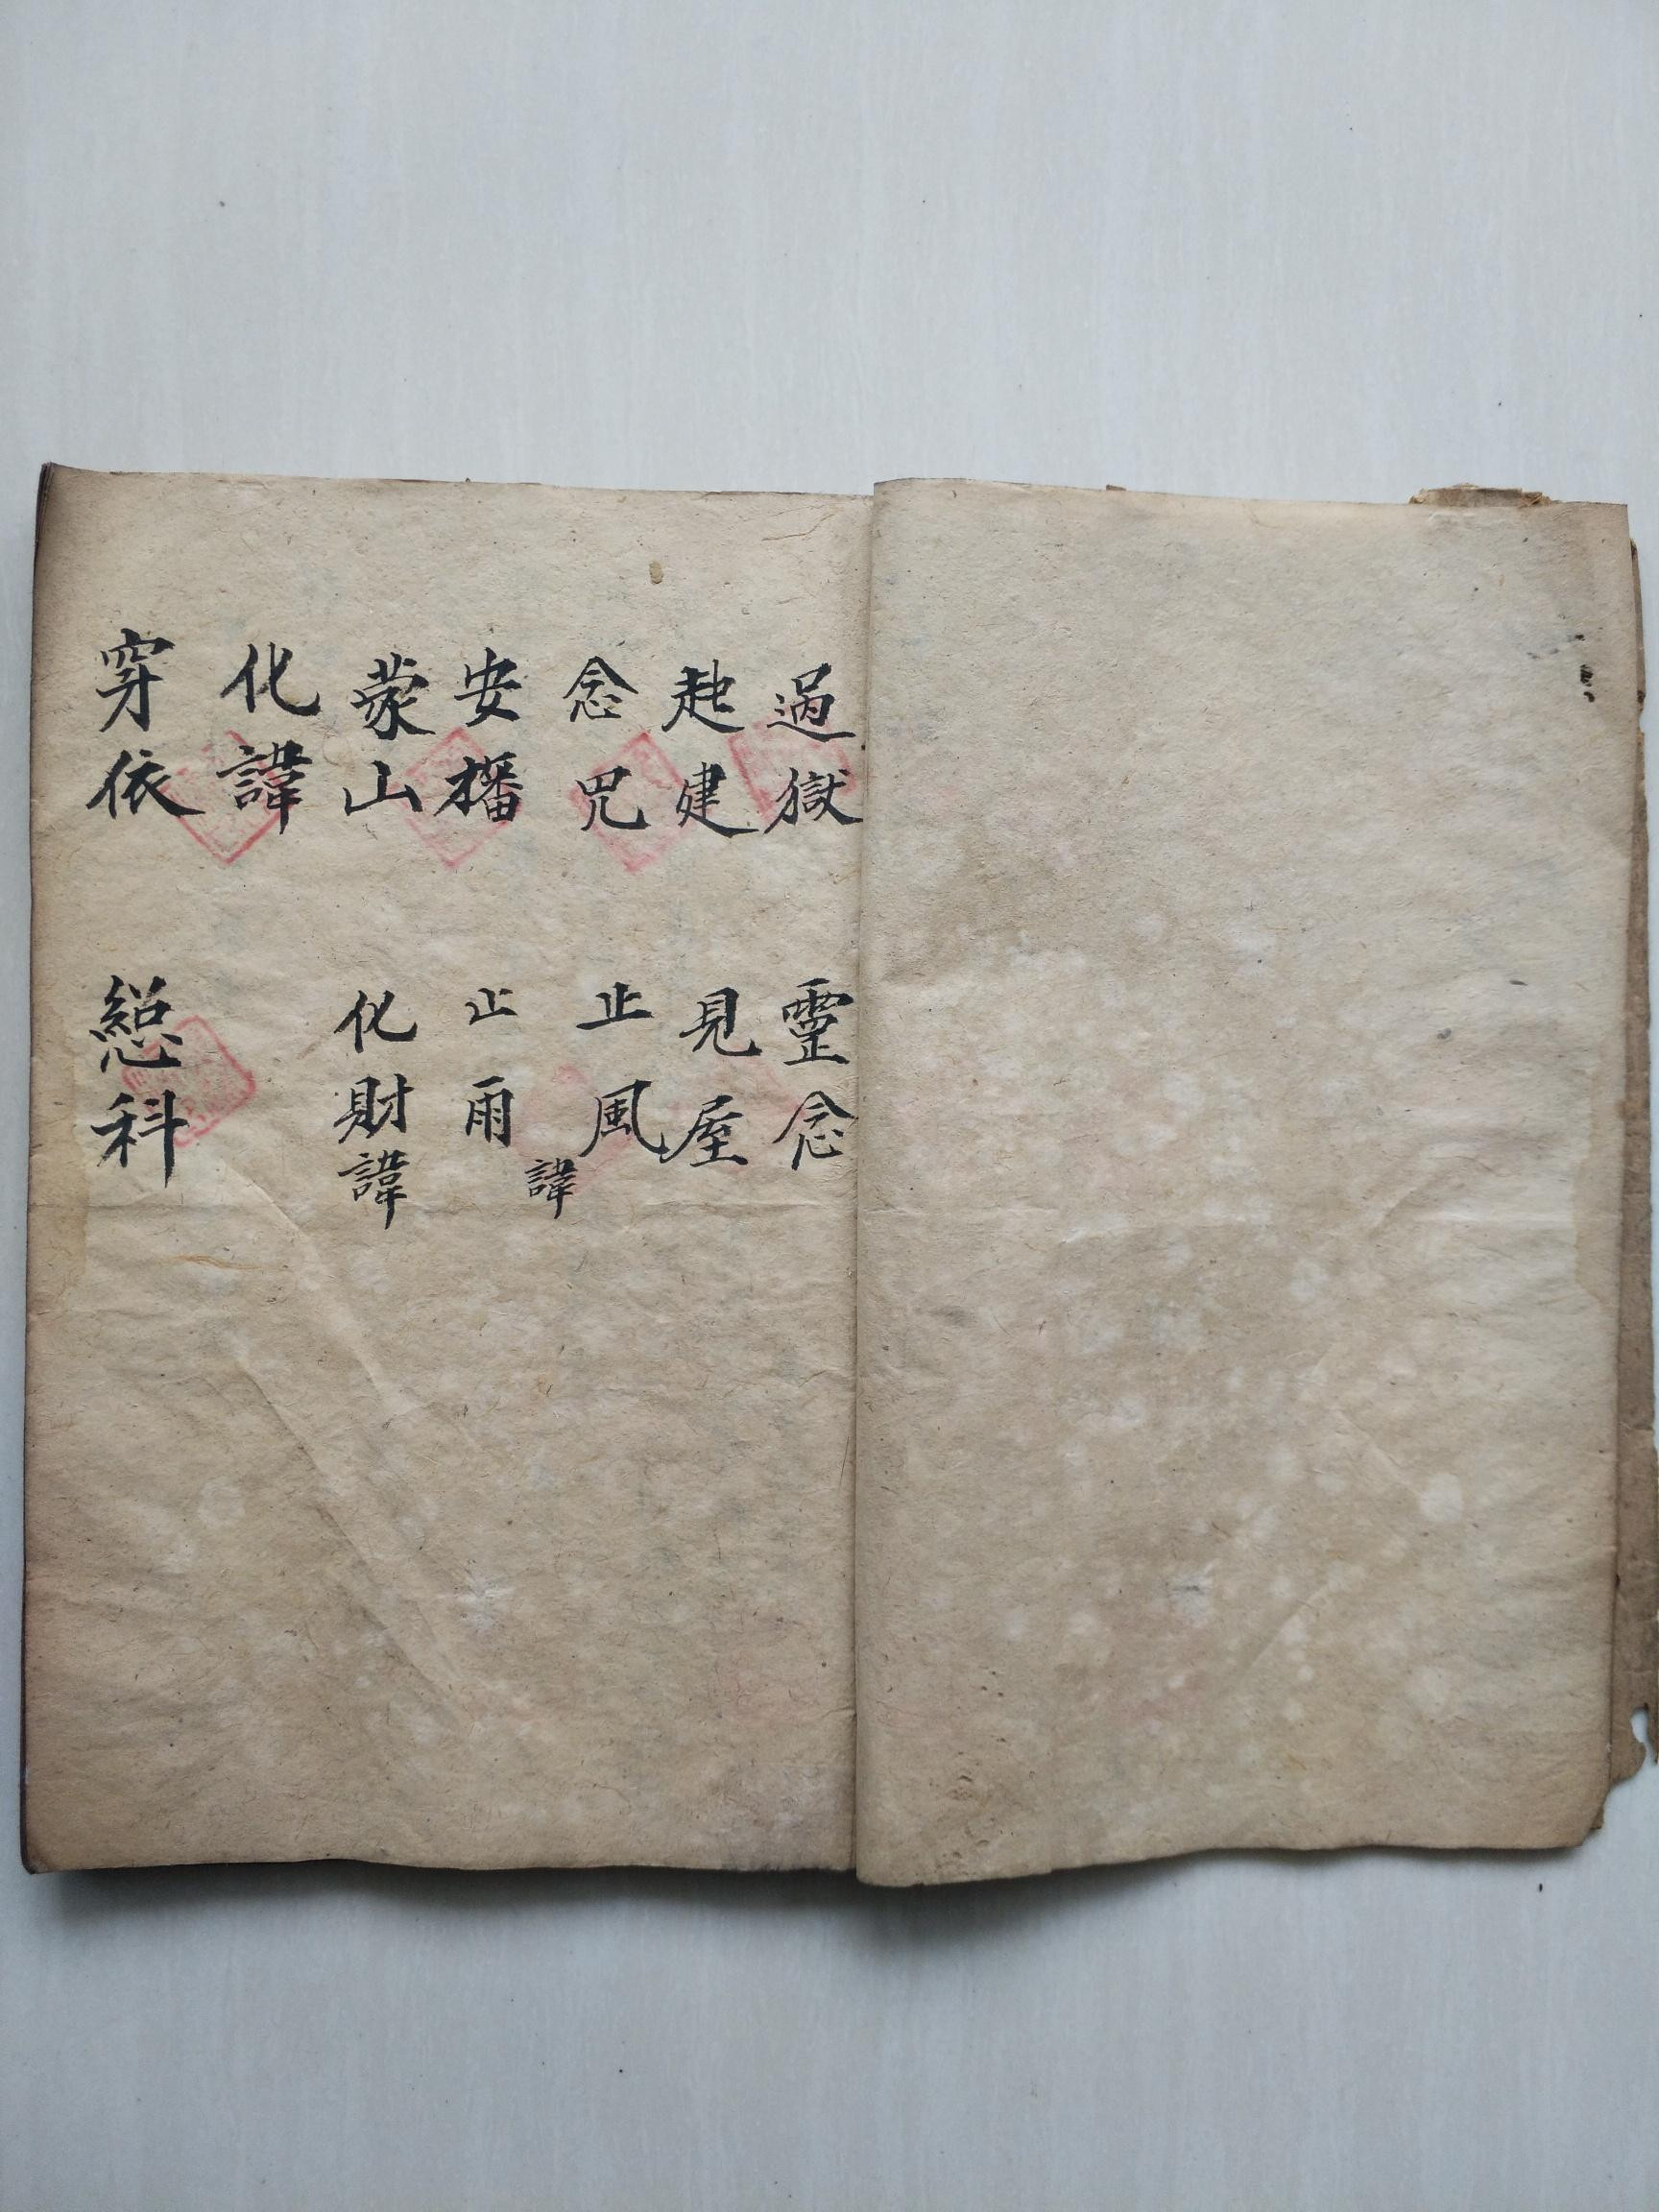 過獄
起建
念咒
安旛
蒙山
化諱
穿依
靈念
見屋
止風
止雨
諱
化財諱
總科